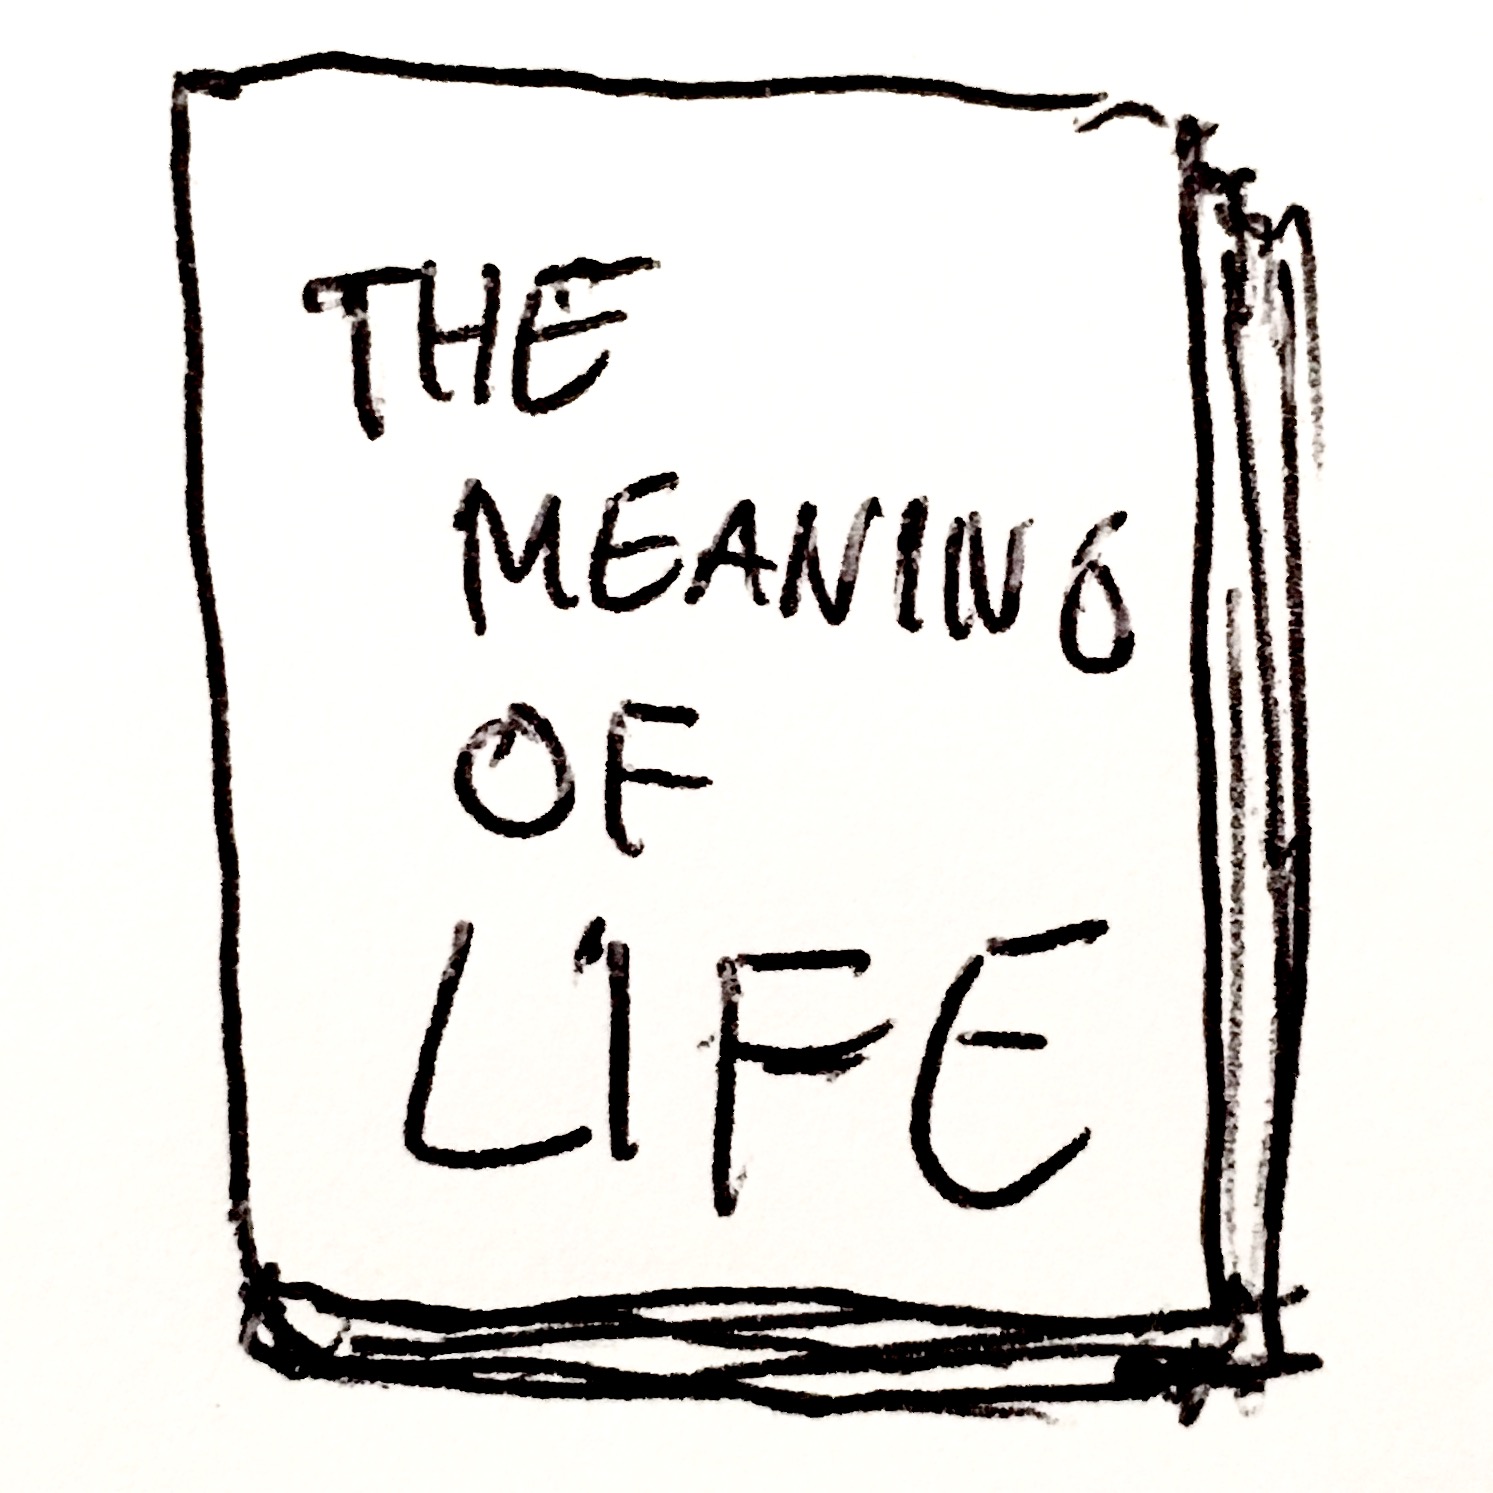 THE
MEANING
OF
LIFE